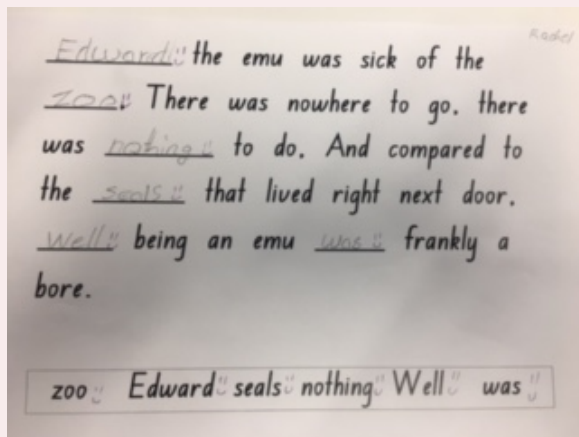 Rachel
Edward the emu was sick of the
zoo. There was nowhere to go. there
was nothing to do. And compared to
the seals that lived right next door.
Well being an emu was frankly a
bore.
zoo Edward seals nothing Well was